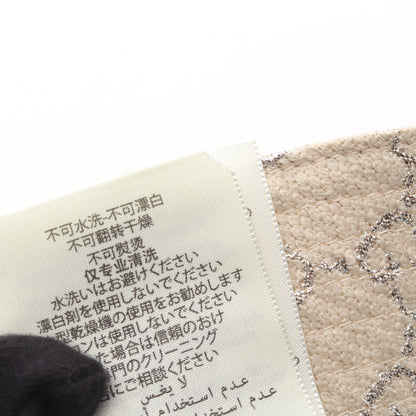 不可水洗-不可漂白
不可翻转干燥
不可熨烫
仅专业清洗
水洗いはお避けください
漂白剤を使用しないでください
型乾燥機の使用をお勧めします
ンは使用しないでください
た場合は信頼のおけ
門のクリーニング
にご相談ください
لا يغسل
عدم استخدام
عدم استخدام